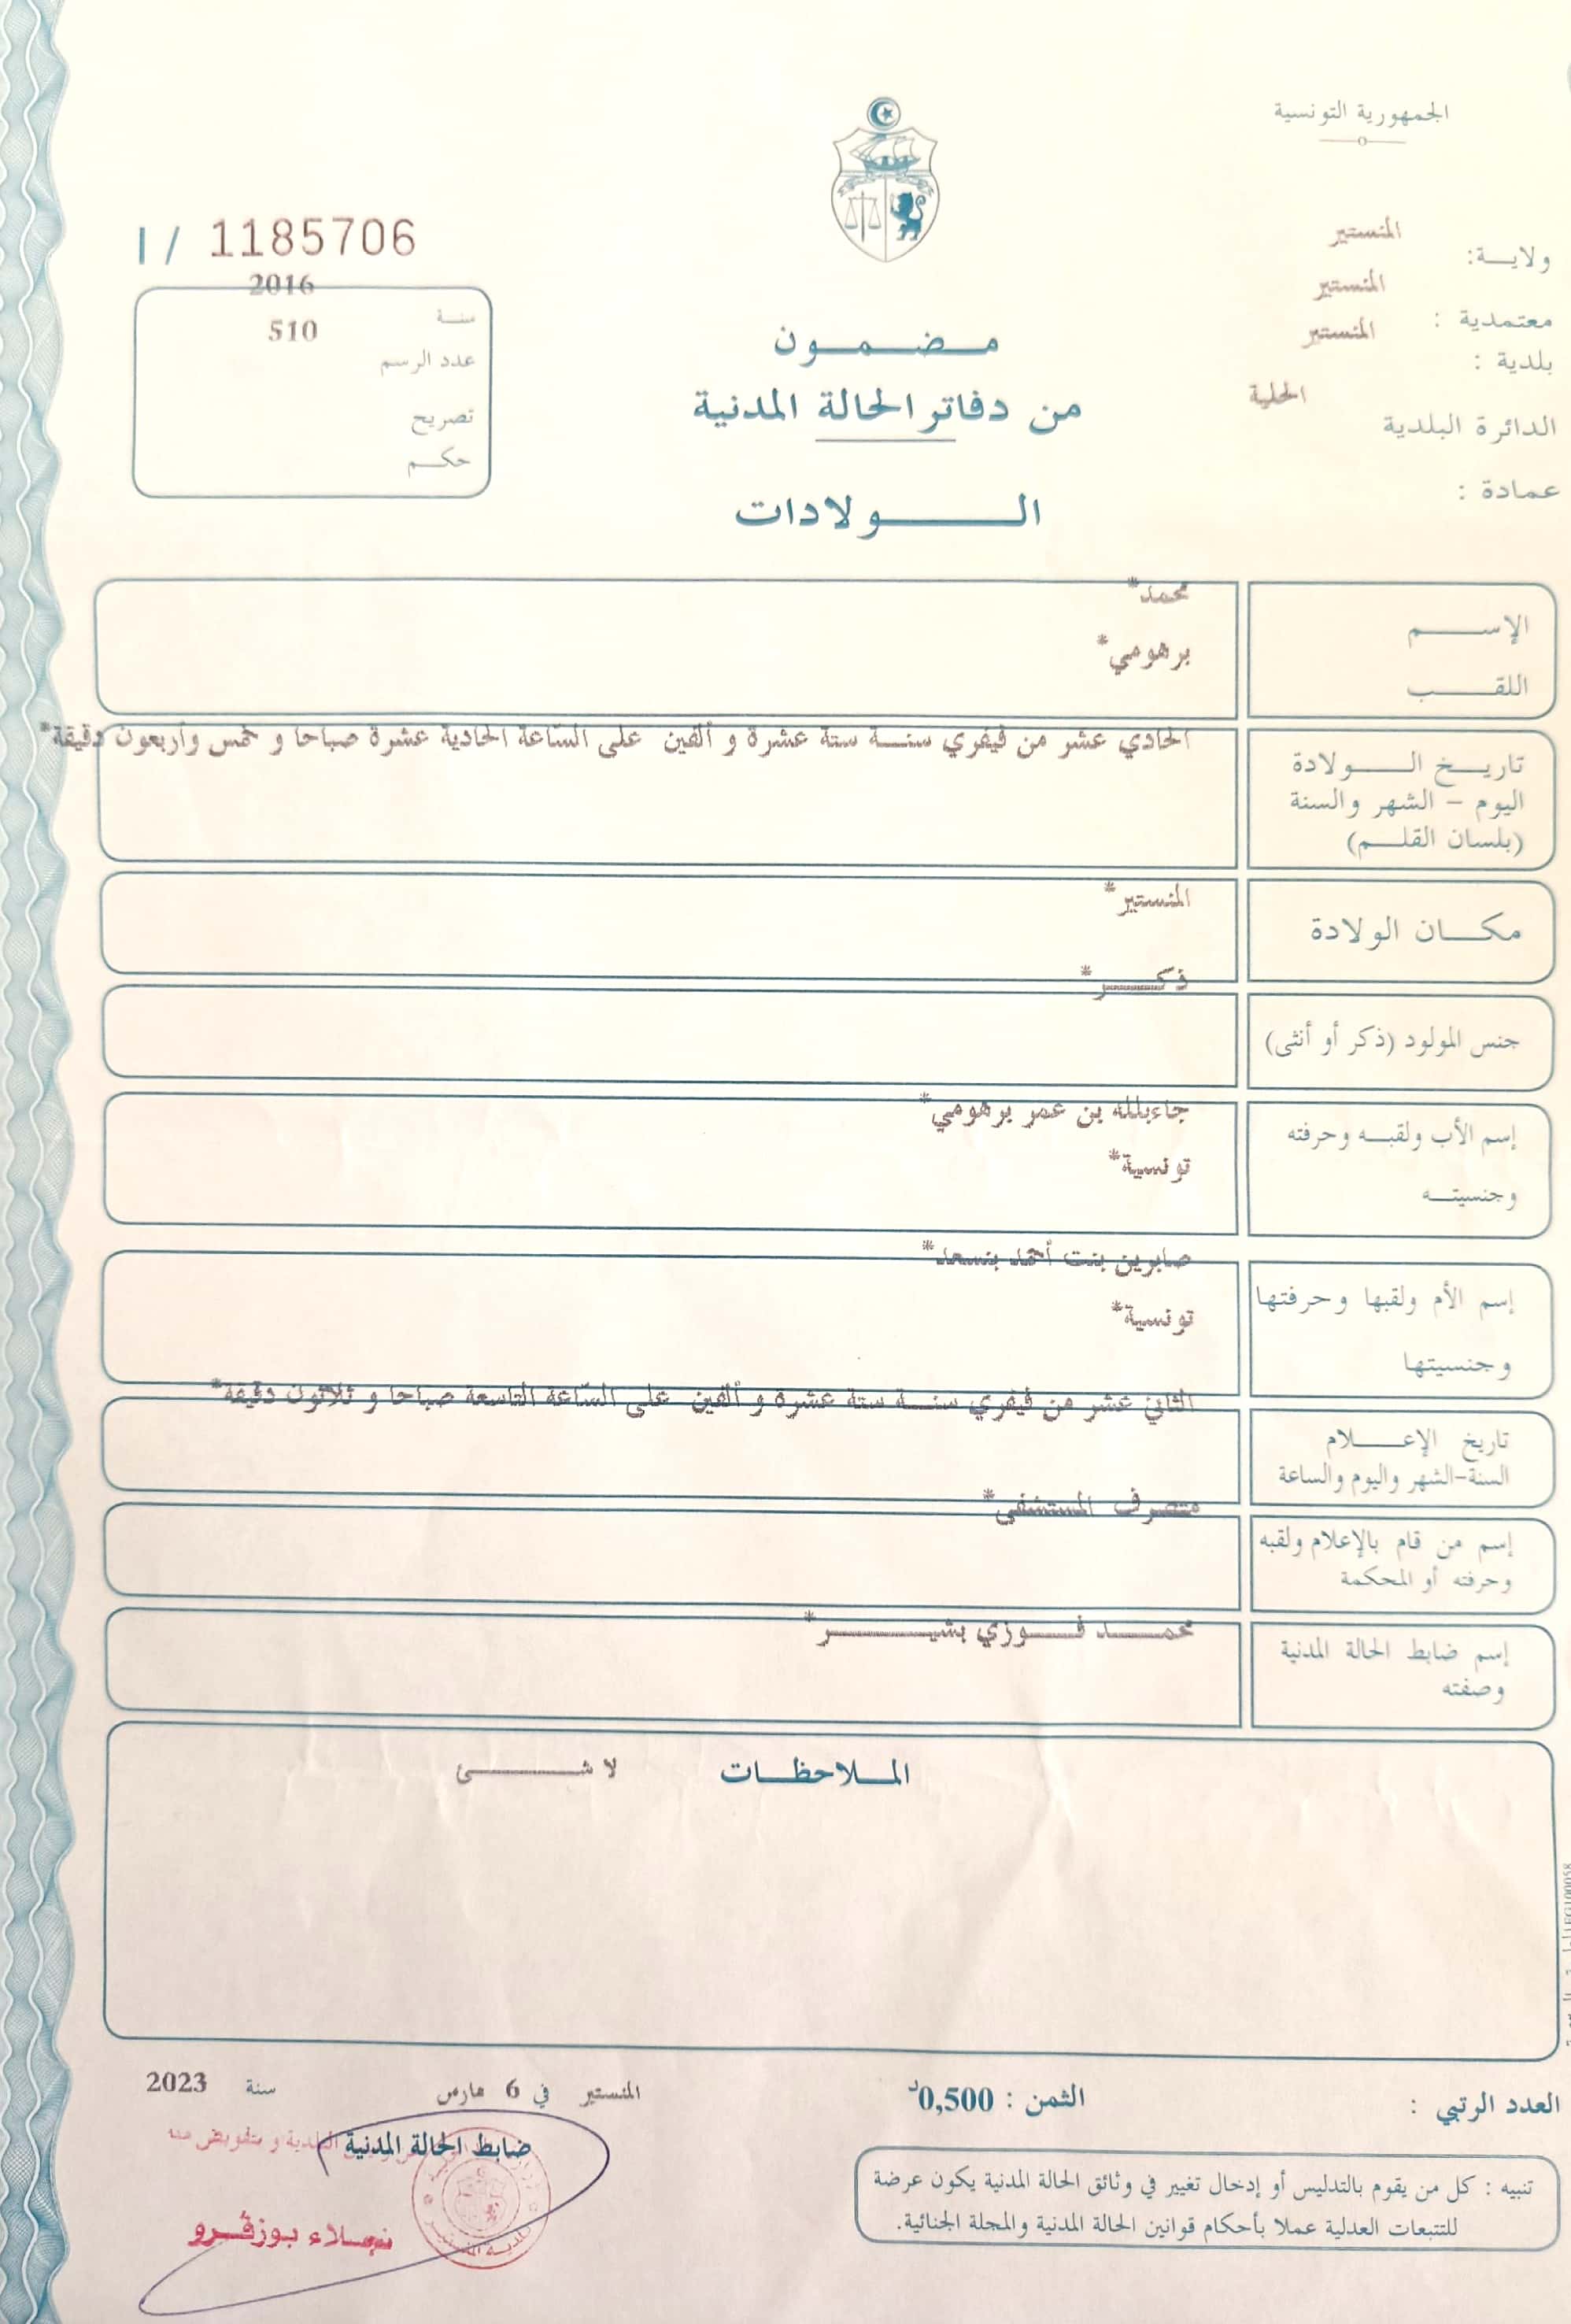 الجمهورية التونسية
ولاية: المنستير
معتمدية : المنستير
بلدية : المنستير
الدائرة البلدية المحلية
عمادة :
I / 1185706
سنة 2016
عدد الرسم 510
تصريح
حكم
مضمون
من دفاتر الحالة المدنية
الولادات
الإسم محمد*
اللقب برهومي*
تاريخ الولادة
اليوم - الشهر والسنة
(بلسان القلم)
الحادي عشر من فيفري سنة ستة عشرة و ألفين على الساعة الحادية عشرة صباحا و خمس وأربعون دقيقة*
مكان الولادة المنستير*
جنس المولود (ذكر أو أنثى) ذكر*
إسم الأب ولقبه وحرفته جاءبلله بن عمر برهومي*
وجنسيته تونسية*
إسم الأم ولقبها وحرفتها صابرين بنت أحمد بنسعد*
وجنسيتها تونسية*
تاريخ الإعلام
السنة-الشهر واليوم والساعة
الثاني عشر من فيفري سنة ستة عشرة و ألفين على الساعة التاسعة صباحا و ثلاثون دقيقة*
إسم من قام بالإعلام ولقبه
وحرفته أو المحكمة
متصرف المستشفى*
إسم ضابط الحالة المدنية
وصفته
محمد فوزي بشير*
الملاحظات لا شئ
العدد الرتبي :
الثمن : 0,500د
المنستير في 6 مارس سنة 2023
ضابط الحالة المدنية
البلدية و بتفويض منه
نجلاء بوزقرو
تنبيه : كل من يقوم بالتدليس أو إدخال تغيير في وثائق الحالة المدنية يكون عرضة
للتتبعات العدلية عملا بأحكام قوانين الحالة المدنية والمجلة الجنائية.